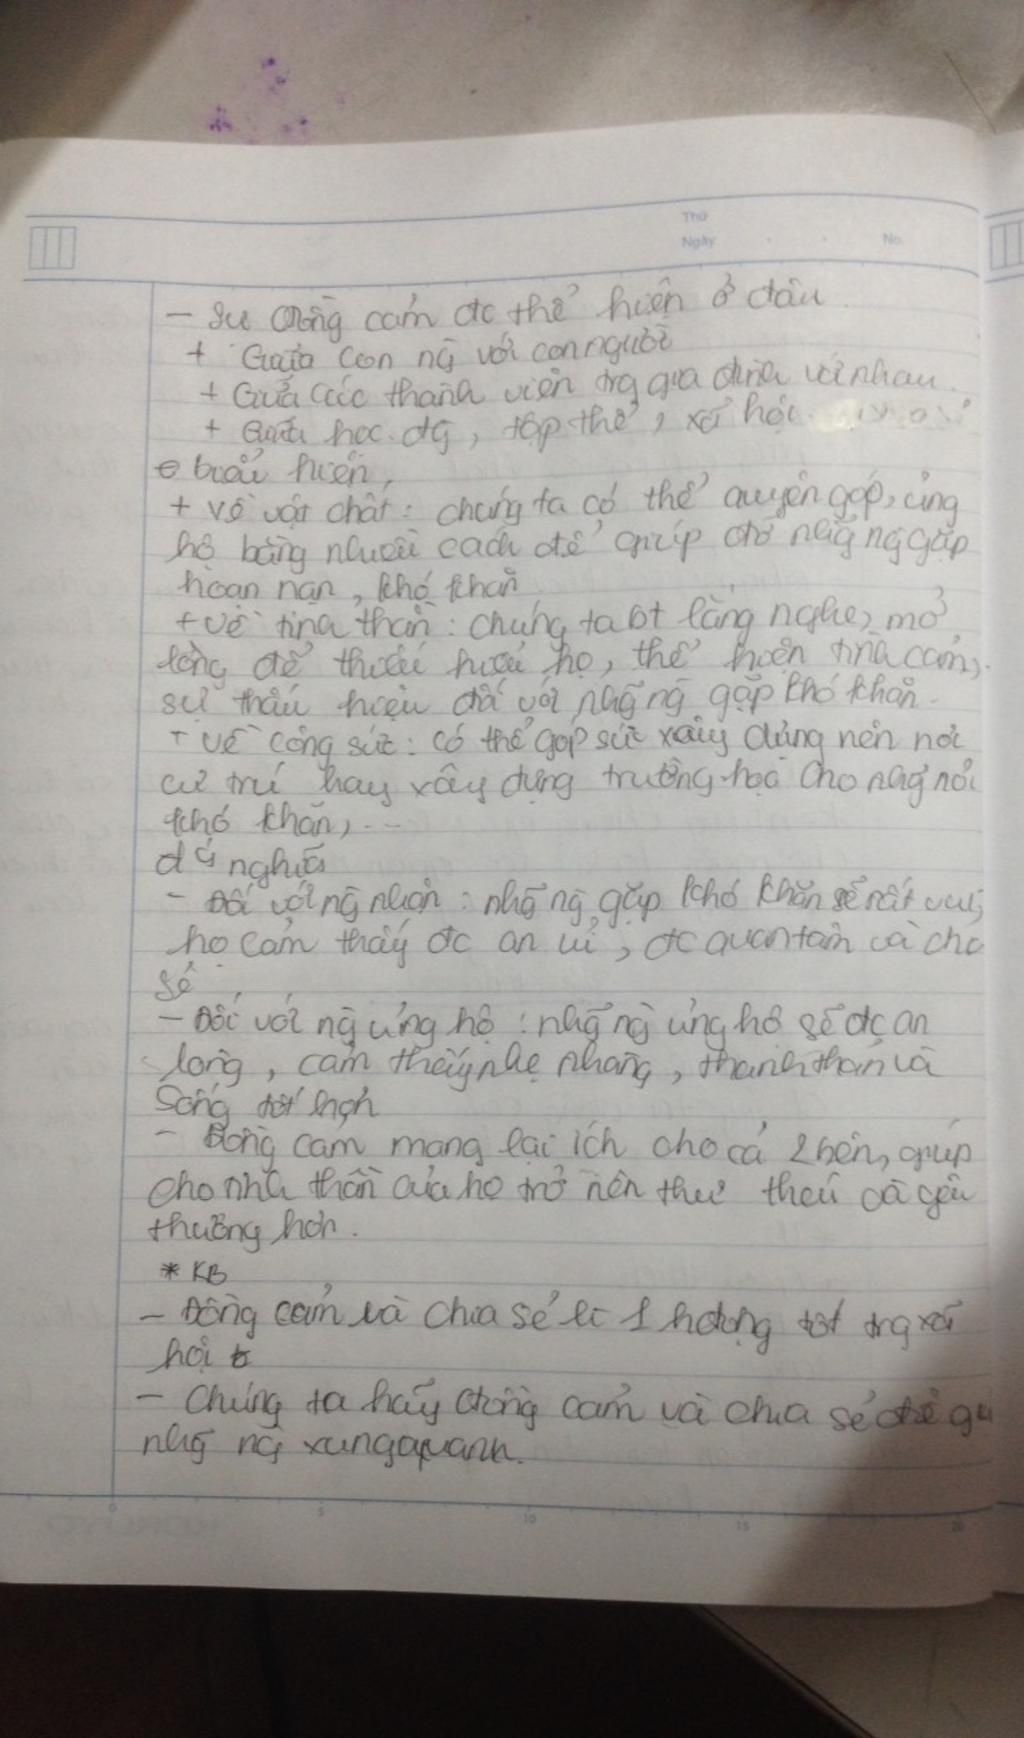 Thứ
Ngày No.
- Sự đồng cảm đc thể hiện ở đâu
+ Giữa con ng̀ với con người
+ Giữa các thành viên trg gia đình với nhau.
+ Giữa học đg, tập thể, xã hội
c biểu hiện,
+ về vật chất: chúng ta có thể quyên góp, ủng
hộ bằng nhiều cách để giúp đỡ nhg̃ ng̀ gặp
hoạn nạn, khó khăn
+ về tinh thần: chúng ta bt lắng nghe, mở
lòng để thấu hiểu họ, thể hiện tình cảm,
sự thấu hiểu đối với nhg̃ ng̀ gặp khó khăn.
+ về công sức: có thể góp sức xây dựng nên nơi
cư trú hay xây dựng trường học cho nhg̃ nơi
khó khăn, ...
d ý nghĩa
- Đối với ng̀ nhận: nhg̃ ng̀ gặp khó khăn sẽ rất vui,
họ cảm thấy đc an ủi, đc quan tâm và chia
sẻ
- Đối với ng̀ ủng hộ: nhg̃ ng̀ ủng hộ sẽ đc an
lòng, cảm thấy nhẹ nhàng, thanh thản và
sống tốt hơn
- Đồng cảm mang lại ích cho cả 2 bên, giúp
cho thân của họ trở nên thư thái và yêu
thương hơn.
* KB
- Đồng cảm và chia sẻ là 1 hđộng tốt trg xã
hội
- Chúng ta hãy đồng cảm và chia sẻ để
nhg̃ ng̀ xung quanh.
0 5 10 15 20